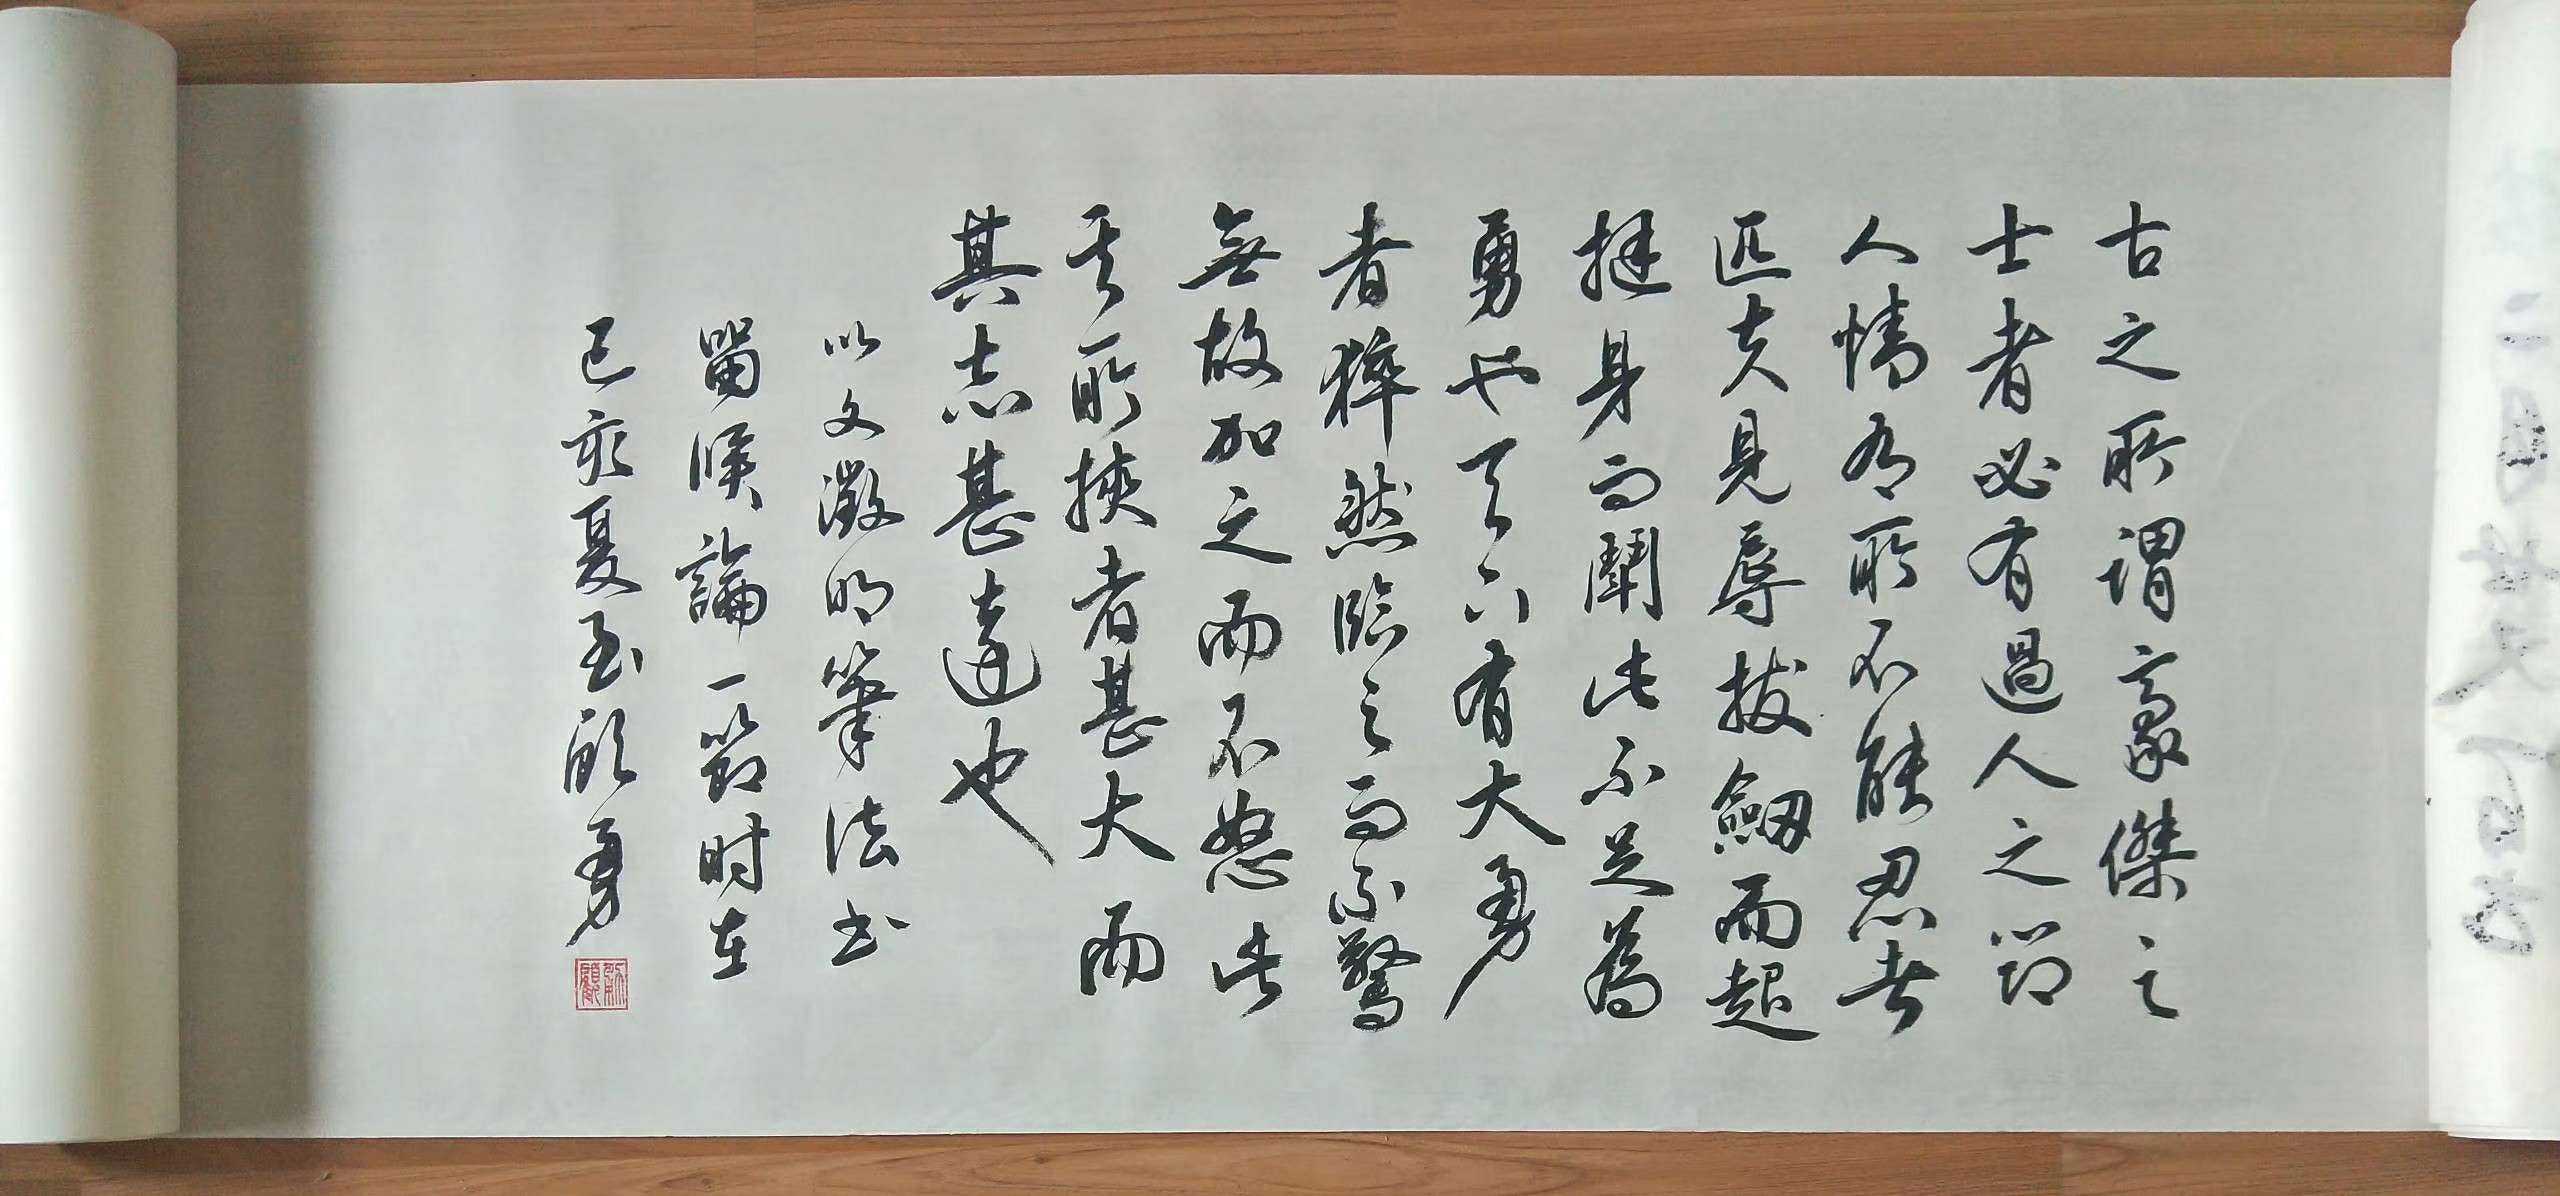 古之所謂豪傑之
士者必有過人之節
人情有所不能忍者
匹夫見辱拔劔而起
挺身而鬪此不足為
勇也天下有大勇
者猝然臨之而不驚
無故加之而不怒此
其所挾者甚大而
其志甚遠也
以文徵明筆法书
留侯論一節时在
己亥夏至顧勇